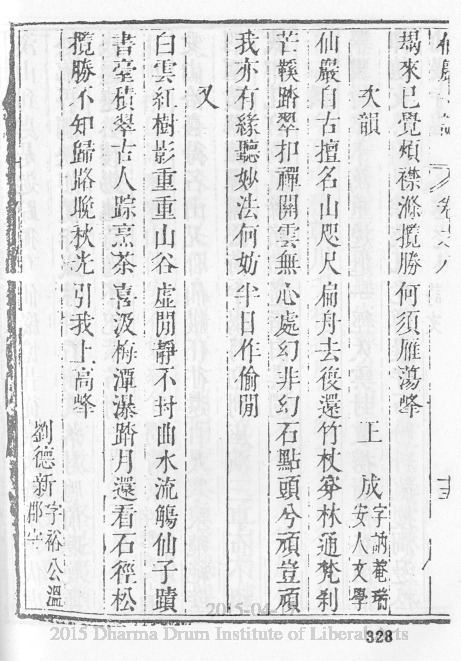 仙巖志 卷之八 十三
朅來已覺煩襟滌攬勝何須雁蕩峰
次韻 王 成 字訥菴瑞安人文學
仙巖自古擅名山咫尺扁舟去後還竹杖穿林通梵刹
芒鞵踏翠扣禪關雲無心處幻非幻石點頭兮頑豈頑
我亦有緣聽妙法何妨半日作偷閒
又
白雲紅樹影重重山谷虛閒靜不封曲水流觴仙子蹟
書臺積翠古人踪烹茶喜汲梅潭瀑踏月還看石徑松
攬勝不知歸路晚秋光引我上高峰
劉德新 字裕公溫郡守
2015-04-
2015 Dharma Drum Institute of Liberal Arts
328